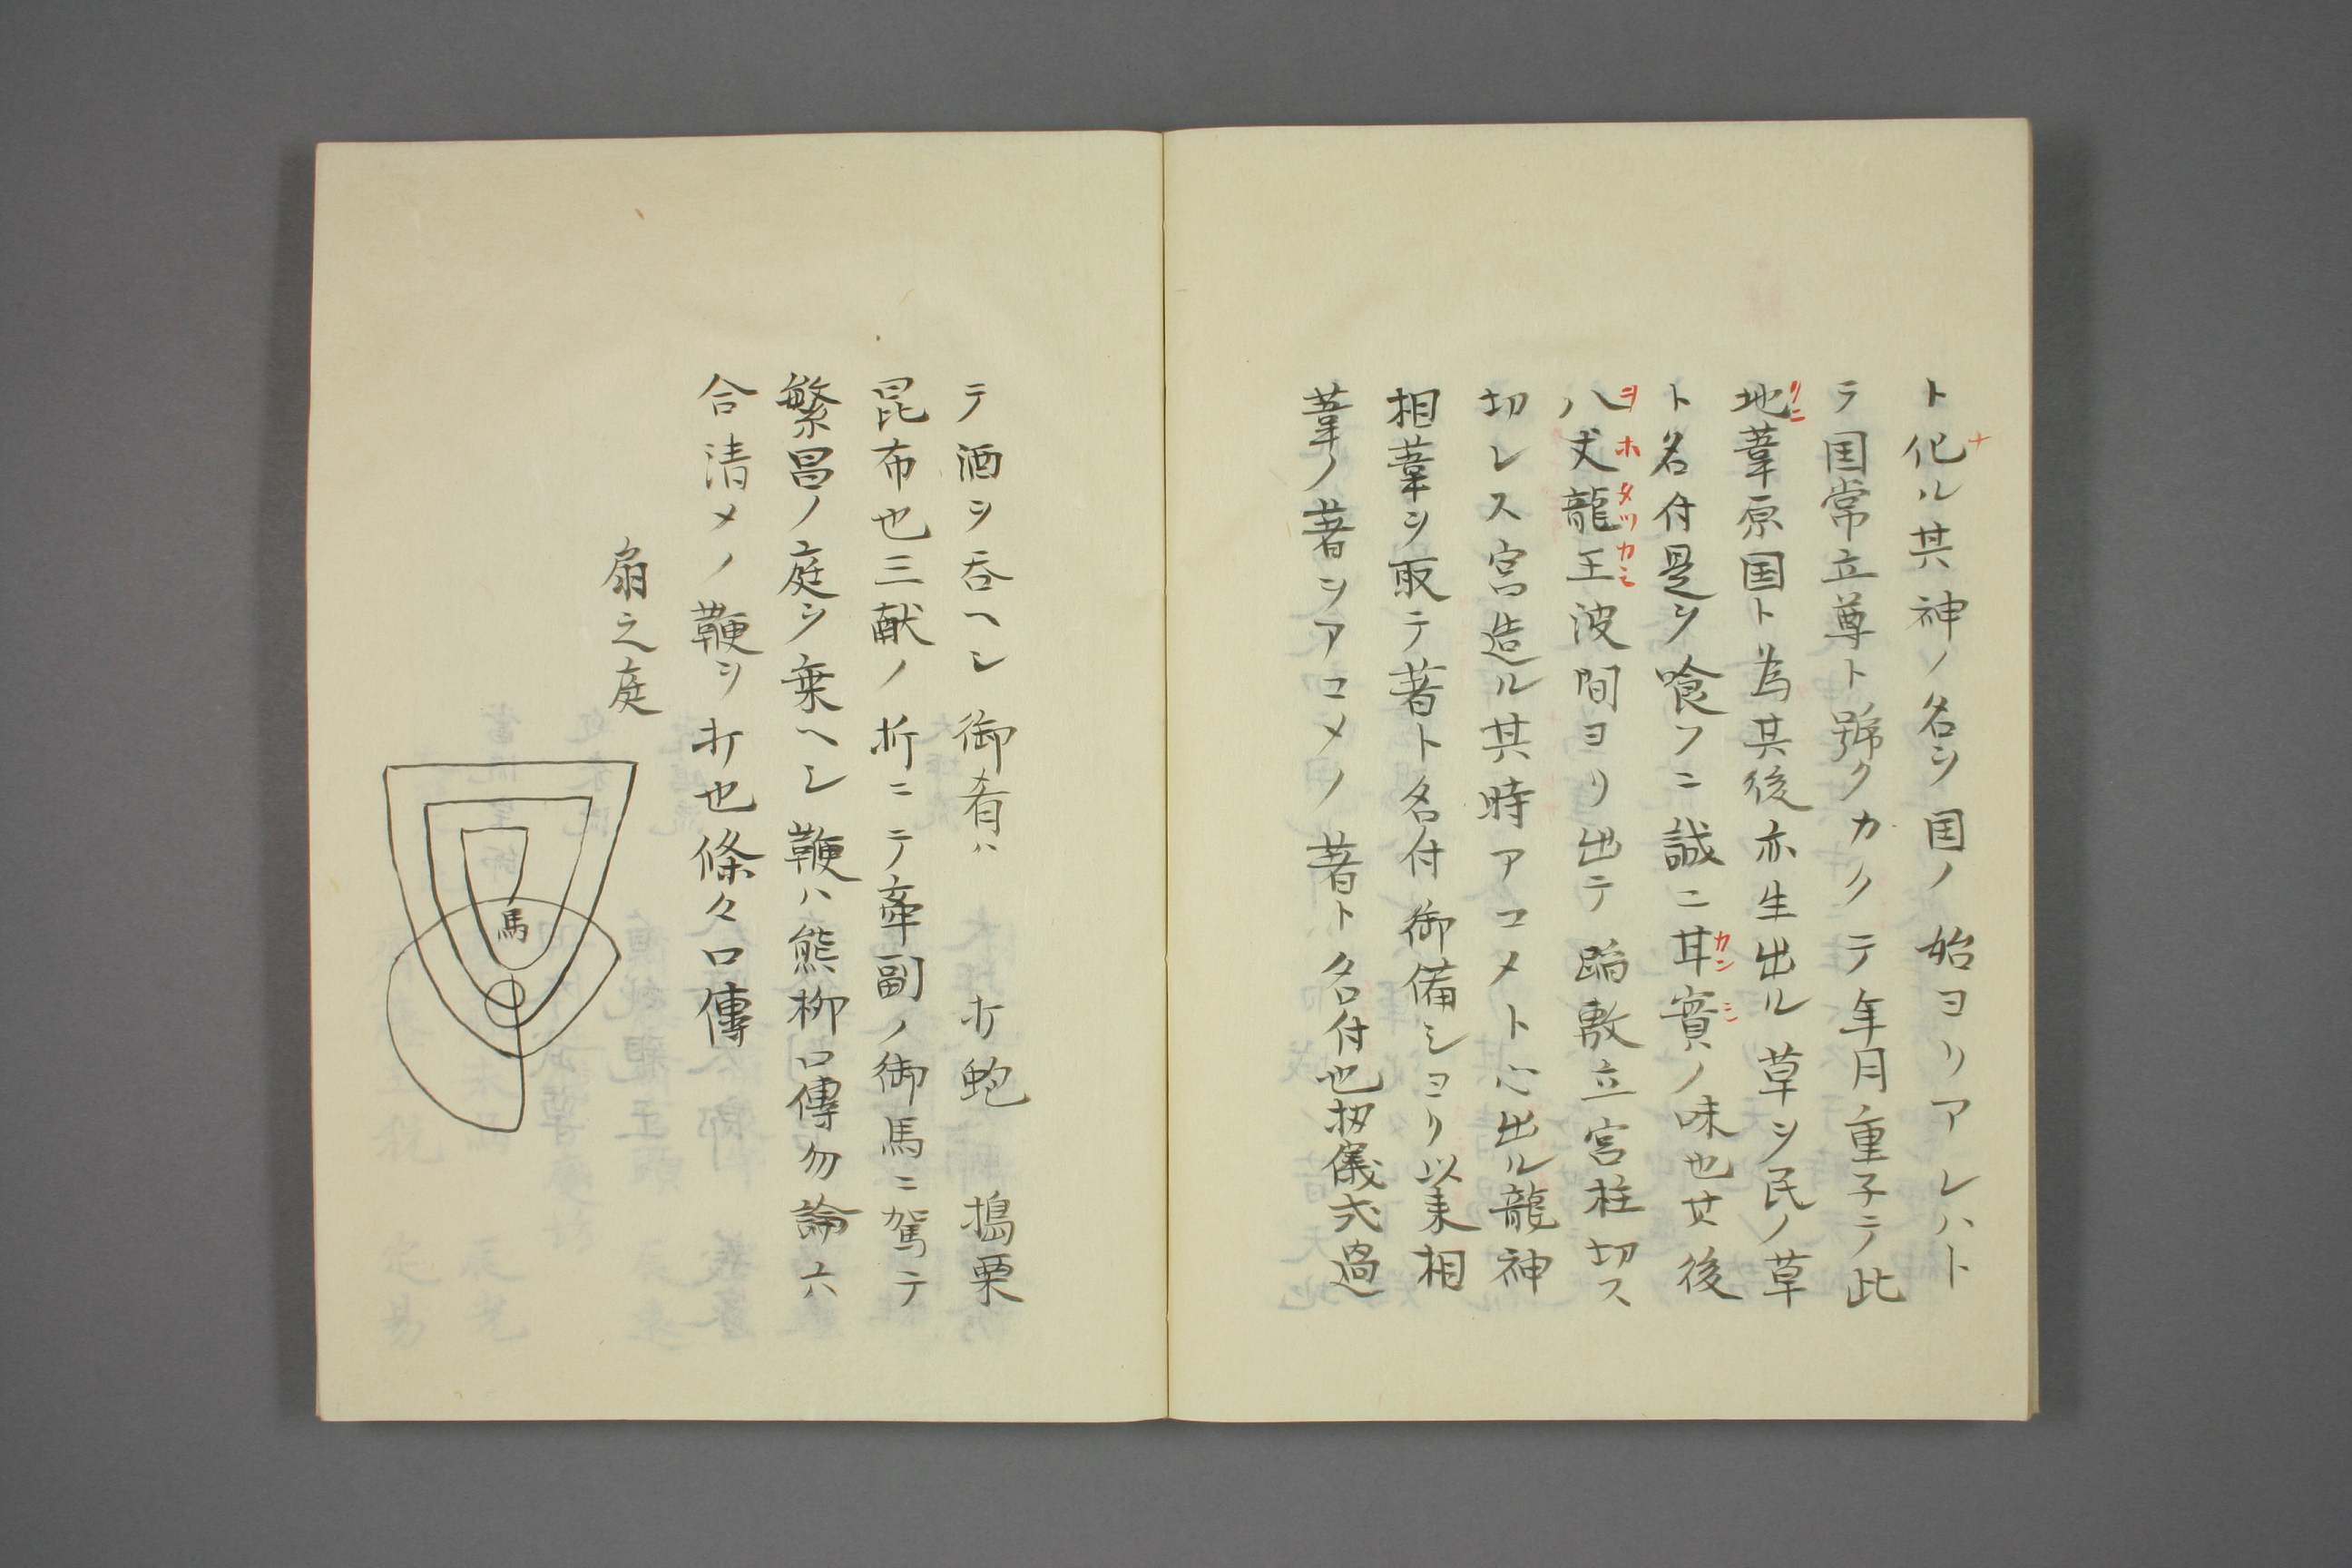 ト化ル其神ノ名ヲ国ノ始ヨリアレハト
テ国常立尊ト號クカクテ年月重子テ此
地葦原国ト為其後亦生出ル草ヲ民ノ草
ト名付是ヲ喰フニ誠ニ甘實ノ味也其後
八丈龍王波間ヨリ出テ蹈敷立宮柱切ス
切レス宮造ル其時アコメト心出ル龍神
相葦ヲ取テ著ト名付御備シヨリ以来相
葦ノ著ヲアコメノ著ト名付也扨儀式過
テ酒ヲ呑ヘシ御肴ハ 打鮑 搗栗
昆布也三献ノ折ニテ牽副ノ御馬ニ駕テ
繁昌ノ庭ヲ乗ヘシ鞭ハ熊柳口傳勿論六
合清メノ鞭ヲ打也條々口傳
扇之庭
馬